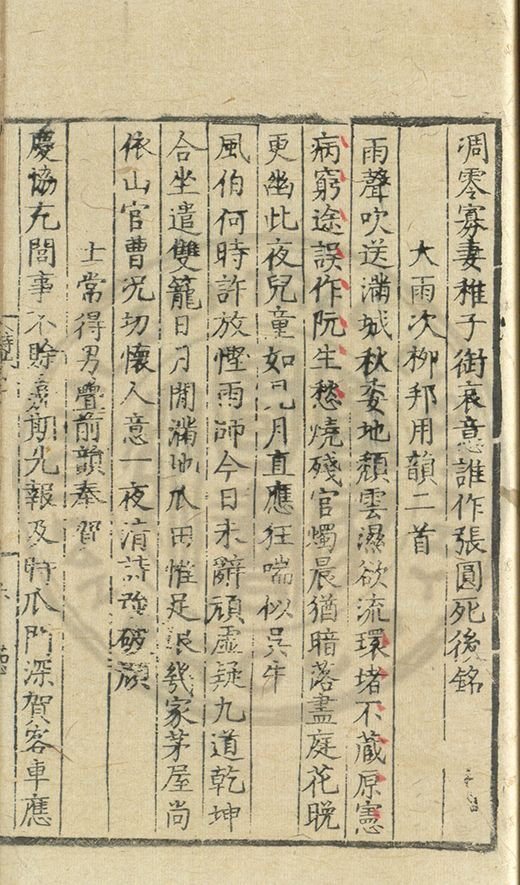 凋零寡妻稚子銜哀意誰作張圓死後銘
大雨次柳邦用韻二首
雨聲吹送滿城秋委地頹雲濕欲流環堵不蔵原憲
病窮途誤作阮生愁燒殘官燭晨猶暗落盡庭花晚
更幽此夜兒童如見月直應狂喘似吳牛
風伯何時許放慳雨師今日未辭頑虛疑九道乾坤
合坐遣雙籠日月閒滿地瓜田惟足恨幾家茅屋尚
依山官曹况切懷人意一夜淸詩強破顔
士常得男疊前韻奉賀
慶協充閭事不賖嘉期先報及時瓜門深賀客車應